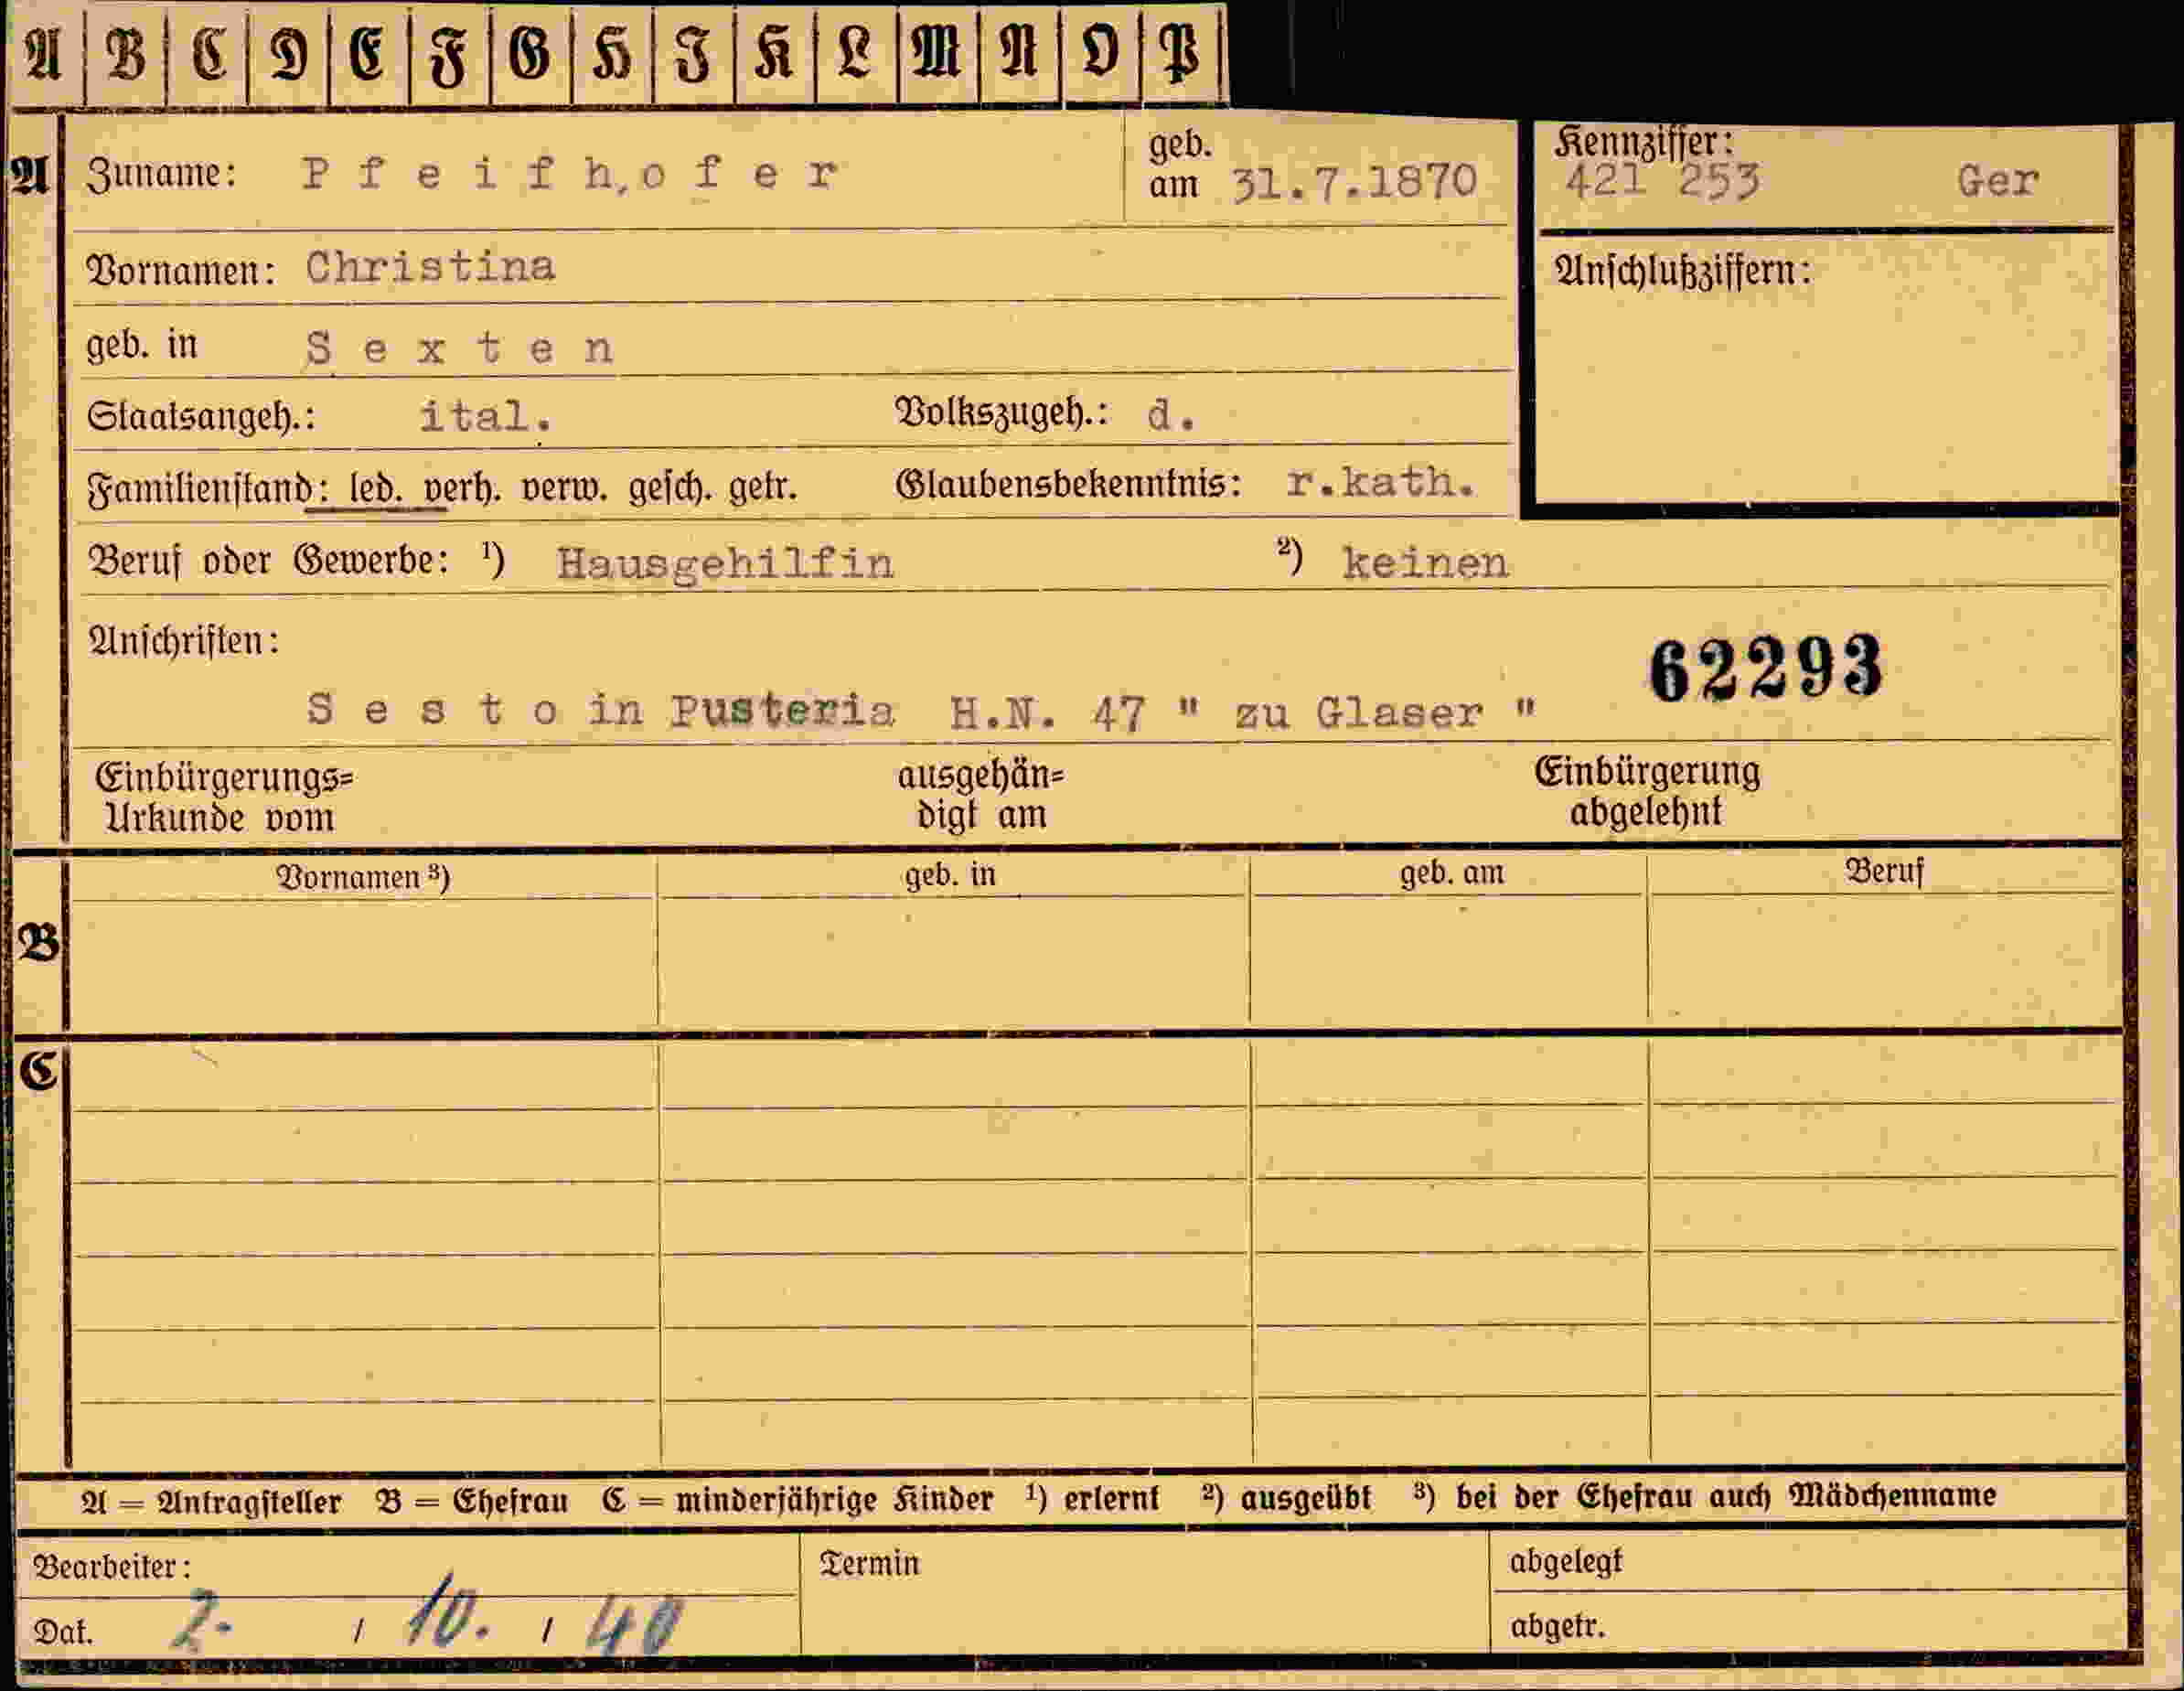 A B C D E F G H I K L M N O P
A Zuname: P f e i f h,o f e r geb. am 31.7.1870 Kennziffer: 421 253 Ger
Vornamen: Christina Anschlußziffern:
geb. in S e x t e n
Staatsangeh.: ital. Volkszugeh.: d.
Familienstand: led. verh. verw. gesch. getr. Glaubensbekenntnis: r.kath.
Beruf oder Gewerbe: ¹) Hausgehilfin ²) keinen
Anschriften:
62293
S e s t o in Pusteria H.N. 47 " zu Glaser "
Einbürgerungs= ausgehän= Einbürgerung
Urkunde vom digt am abgelehnt
Vornamen ³) geb. in geb. am Beruf
B
C
A = Antragsteller B = Ehefrau C = minderjährige Kinder ¹) erlernt ²) ausgeübt ³) bei der Ehefrau auch Mädchenname
Bearbeiter: Termin abgelegt
Dat. 2. / 10. / 40 abgetr.